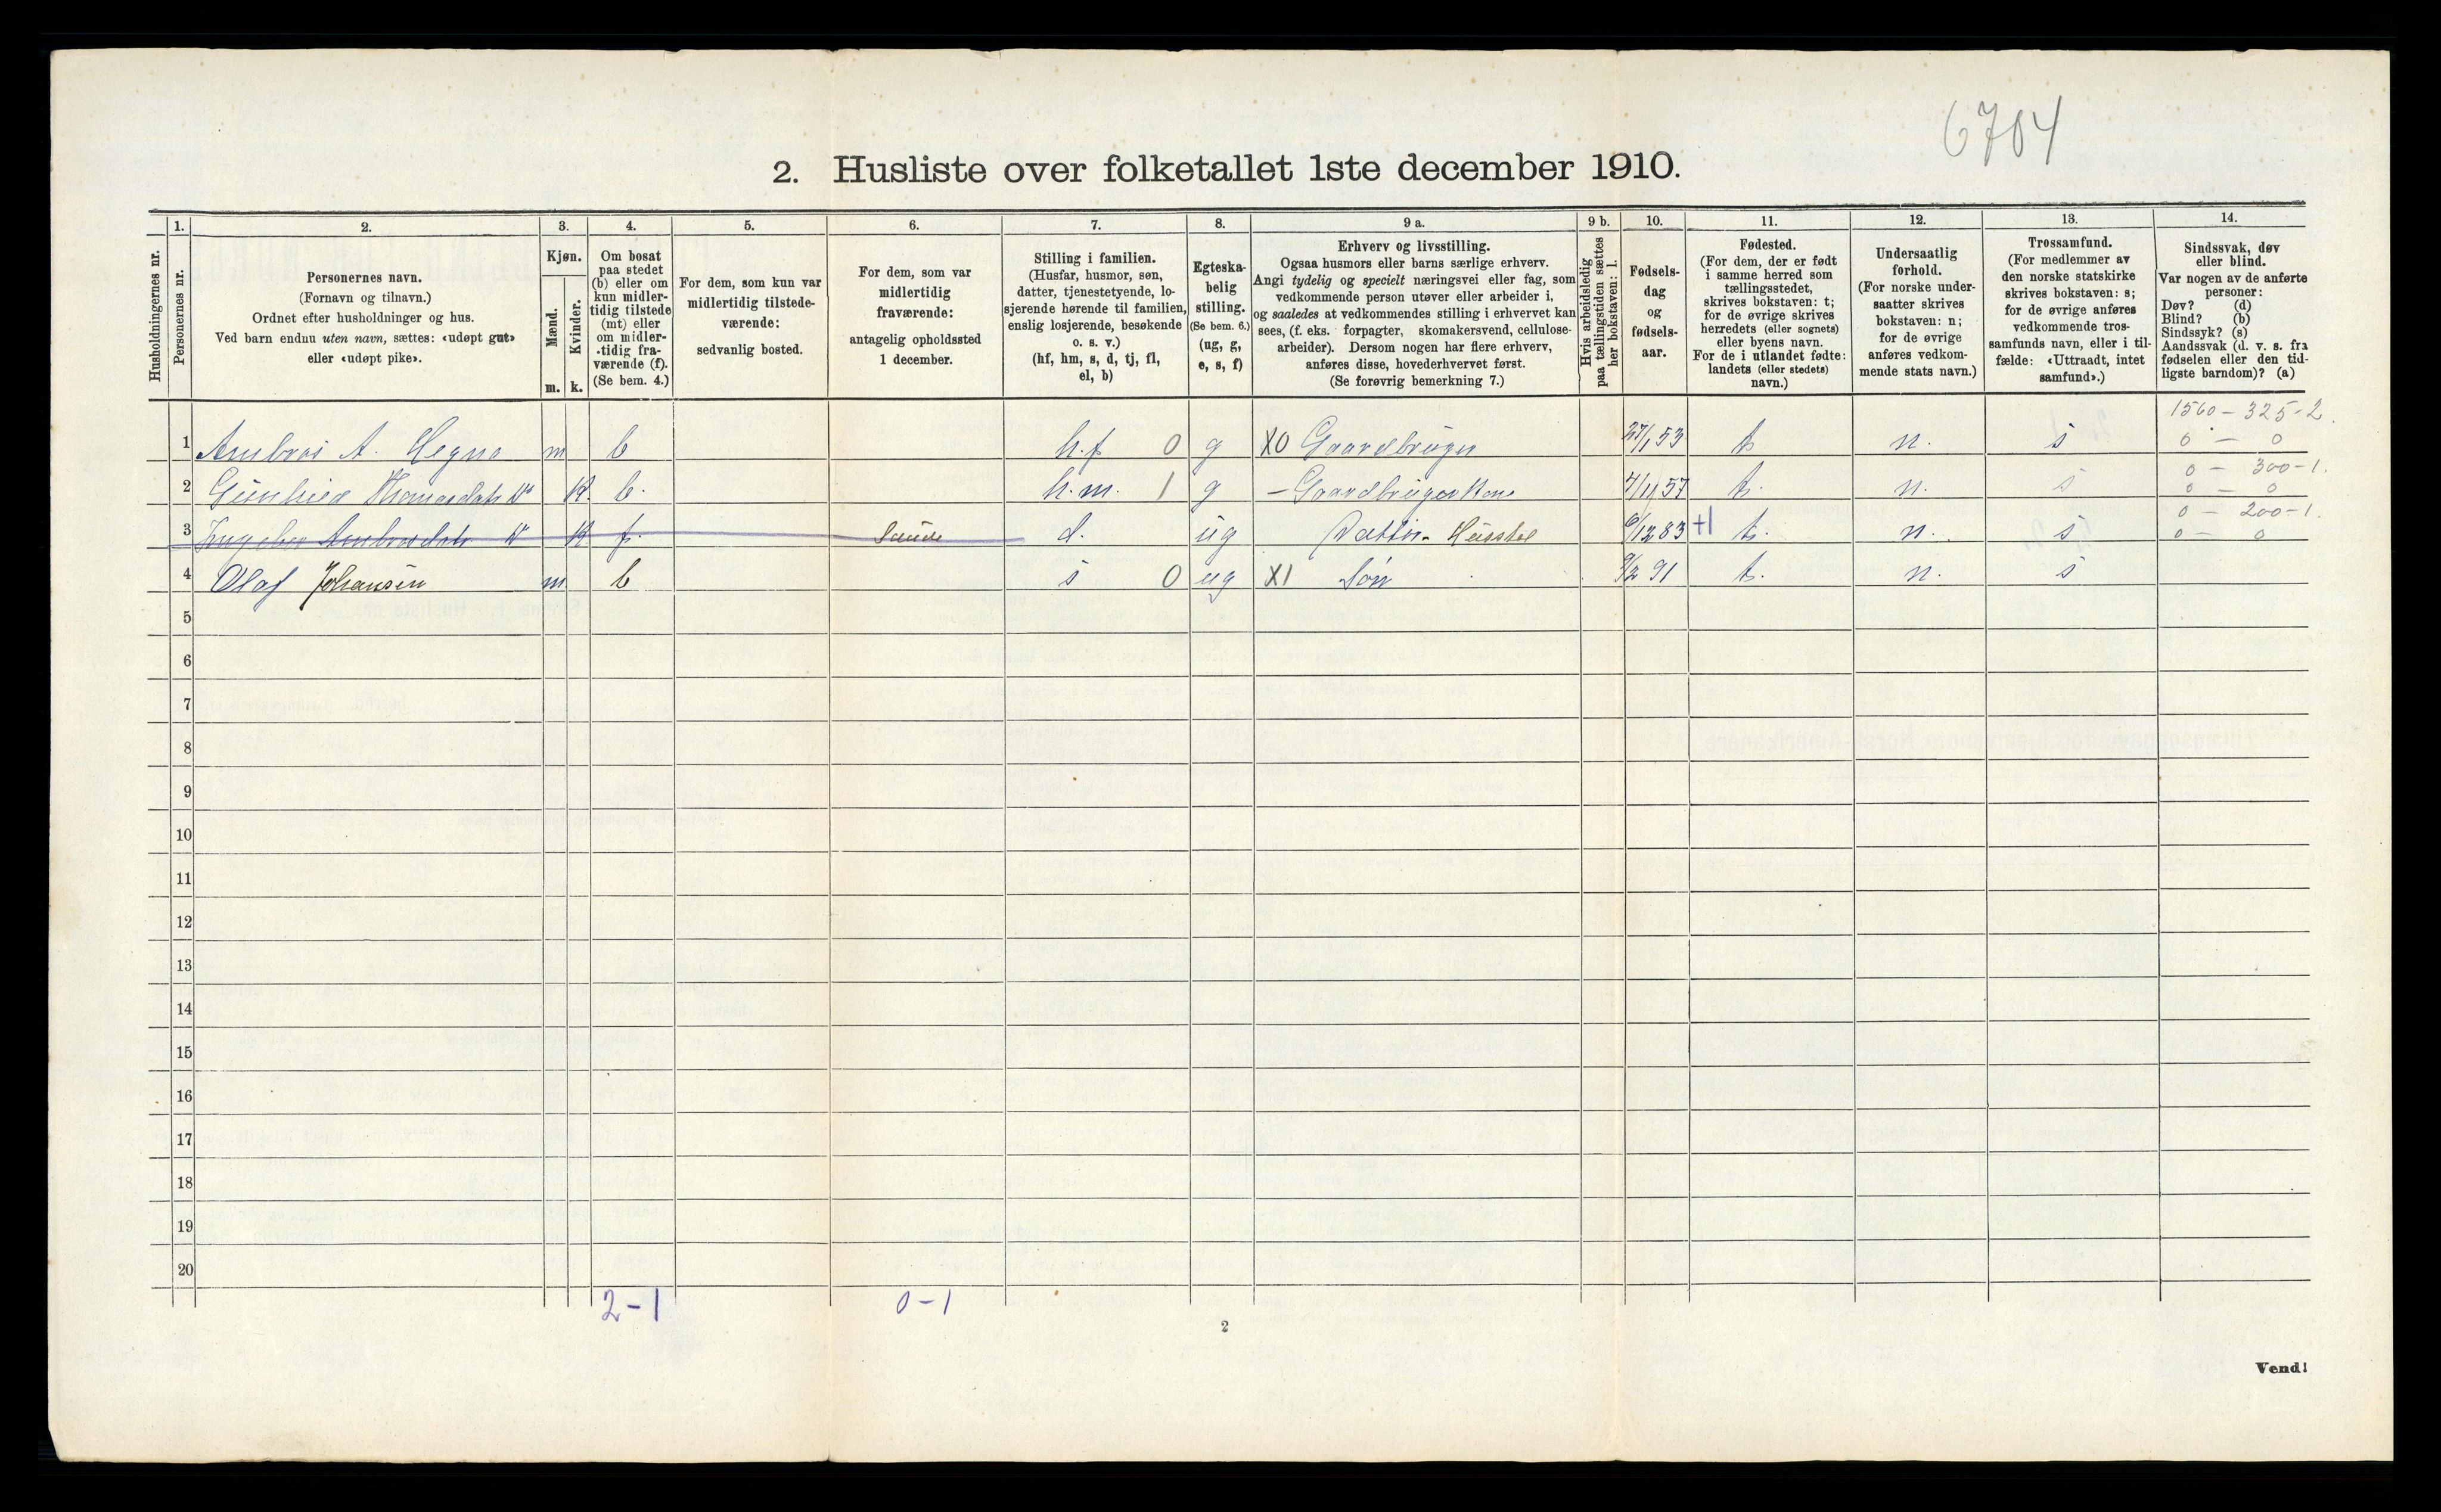 6704
2. Husliste over folketallet 1ste december 1910.
Husholdningernes nr.
1.
Personernes nr.
2.
Personernes navn.
(Fornavn og tilnavn.)
Ordnet efter husholdninger og hus.
Ved barn endnu uten navn, sættes: «udøpt gut»
eller «udøpt pike».
3.
Kjøn.
Mænd.
Kvinder.
m. k.
4.
Om bosat
paa stedet
(b) eller om
kun midler-
tidig tilstede
(mt) eller
om midler-
tidig fra-
værende (f).
(Se bem. 4.)
5.
For dem, som kun var
midlertidig tilstede-
værende:
sedvanlig bosted.
6.
For dem, som var
midlertidig
fraværende:
antagelig opholdssted
1 december.
7.
Stilling i familien.
(Husfar, husmor, søn,
datter, tjenestetyende, lo-
sjerende hørende til familien,
enslig losjerende, besøkende
o. s. v.)
(hf, hm, s, d, tj, fl,
el, b)
8.
Egteska-
belig
stilling.
(Se bem. 6.)
(ug, g,
e, s, f)
9 a.
Erhverv og livsstilling.
Ogsaa husmors eller barns særlige erhverv.
Angi tydelig og specielt næringsvei eller fag, som
vedkommende person utøver eller arbeider i,
og saaledes at vedkommendes stilling i erhvervet kan
sees, (f. eks. forpagter, skomakersvend, cellulose-
arbeider). Dersom nogen har flere erhverv,
anføres disse, hovederhvervet først.
(Se forøvrig bemerkning 7.)
9 b.
Hvis arbeidsledig
paa tællingstiden sættes
her bokstaven: l.
10.
Fødsels-
dag
og
fødsels-
aar.
11.
Fødested.
(For dem, der er født
i samme herred som
tællingsstedet,
skrives bokstaven: t;
for de øvrige skrives
herredets (eller sognets)
eller byens navn.
For de i utlandet fødte:
landets (eller stedets)
navn.)
12.
Undersaatlig
forhold.
(For norske under-
saatter skrives
bokstaven: n;
for de øvrige
anføres vedkom-
mende stats navn.)
13.
Trossamfund.
(For medlemmer av
den norske statskirke
skrives bokstaven: s;
for de øvrige anføres
vedkommende tros-
samfunds navn, eller i til-
fælde: «Uttraadt, intet
samfund».)
14.
Sindssvak, døv
eller blind.
Var nogen av de anførte
personer:
Døv? (d)
Blind? (b)
Sindssyk? (s)
Aandssvak (d. v. s. fra
fødselen eller den tid-
ligste barndom)? (a)
1560 - 325-2.
1 Ambros A. Hegna m b h.f 0 g X0 Gaardbruger 27/1 53 t. n. s 0 - 0
0 - 300-1.
2 Gunhild Thomasdatr K. b. h.m. 1 g - Gaardbruger Kone 4/11 57 t. n. s 0 - 0
0 - 200-1.
3 Ingebor Ambrosdatr K f. d. ug Datter Husstel 6/12 83 +1 t. n. s 0 0
4 Olaf Johansen m b s 0 ug X1 Søn 91 t. n. s
5
6
7
8
9
10
11
12
13
14
15
16
17
18
19
20
2-1 0-1
2
Vend!